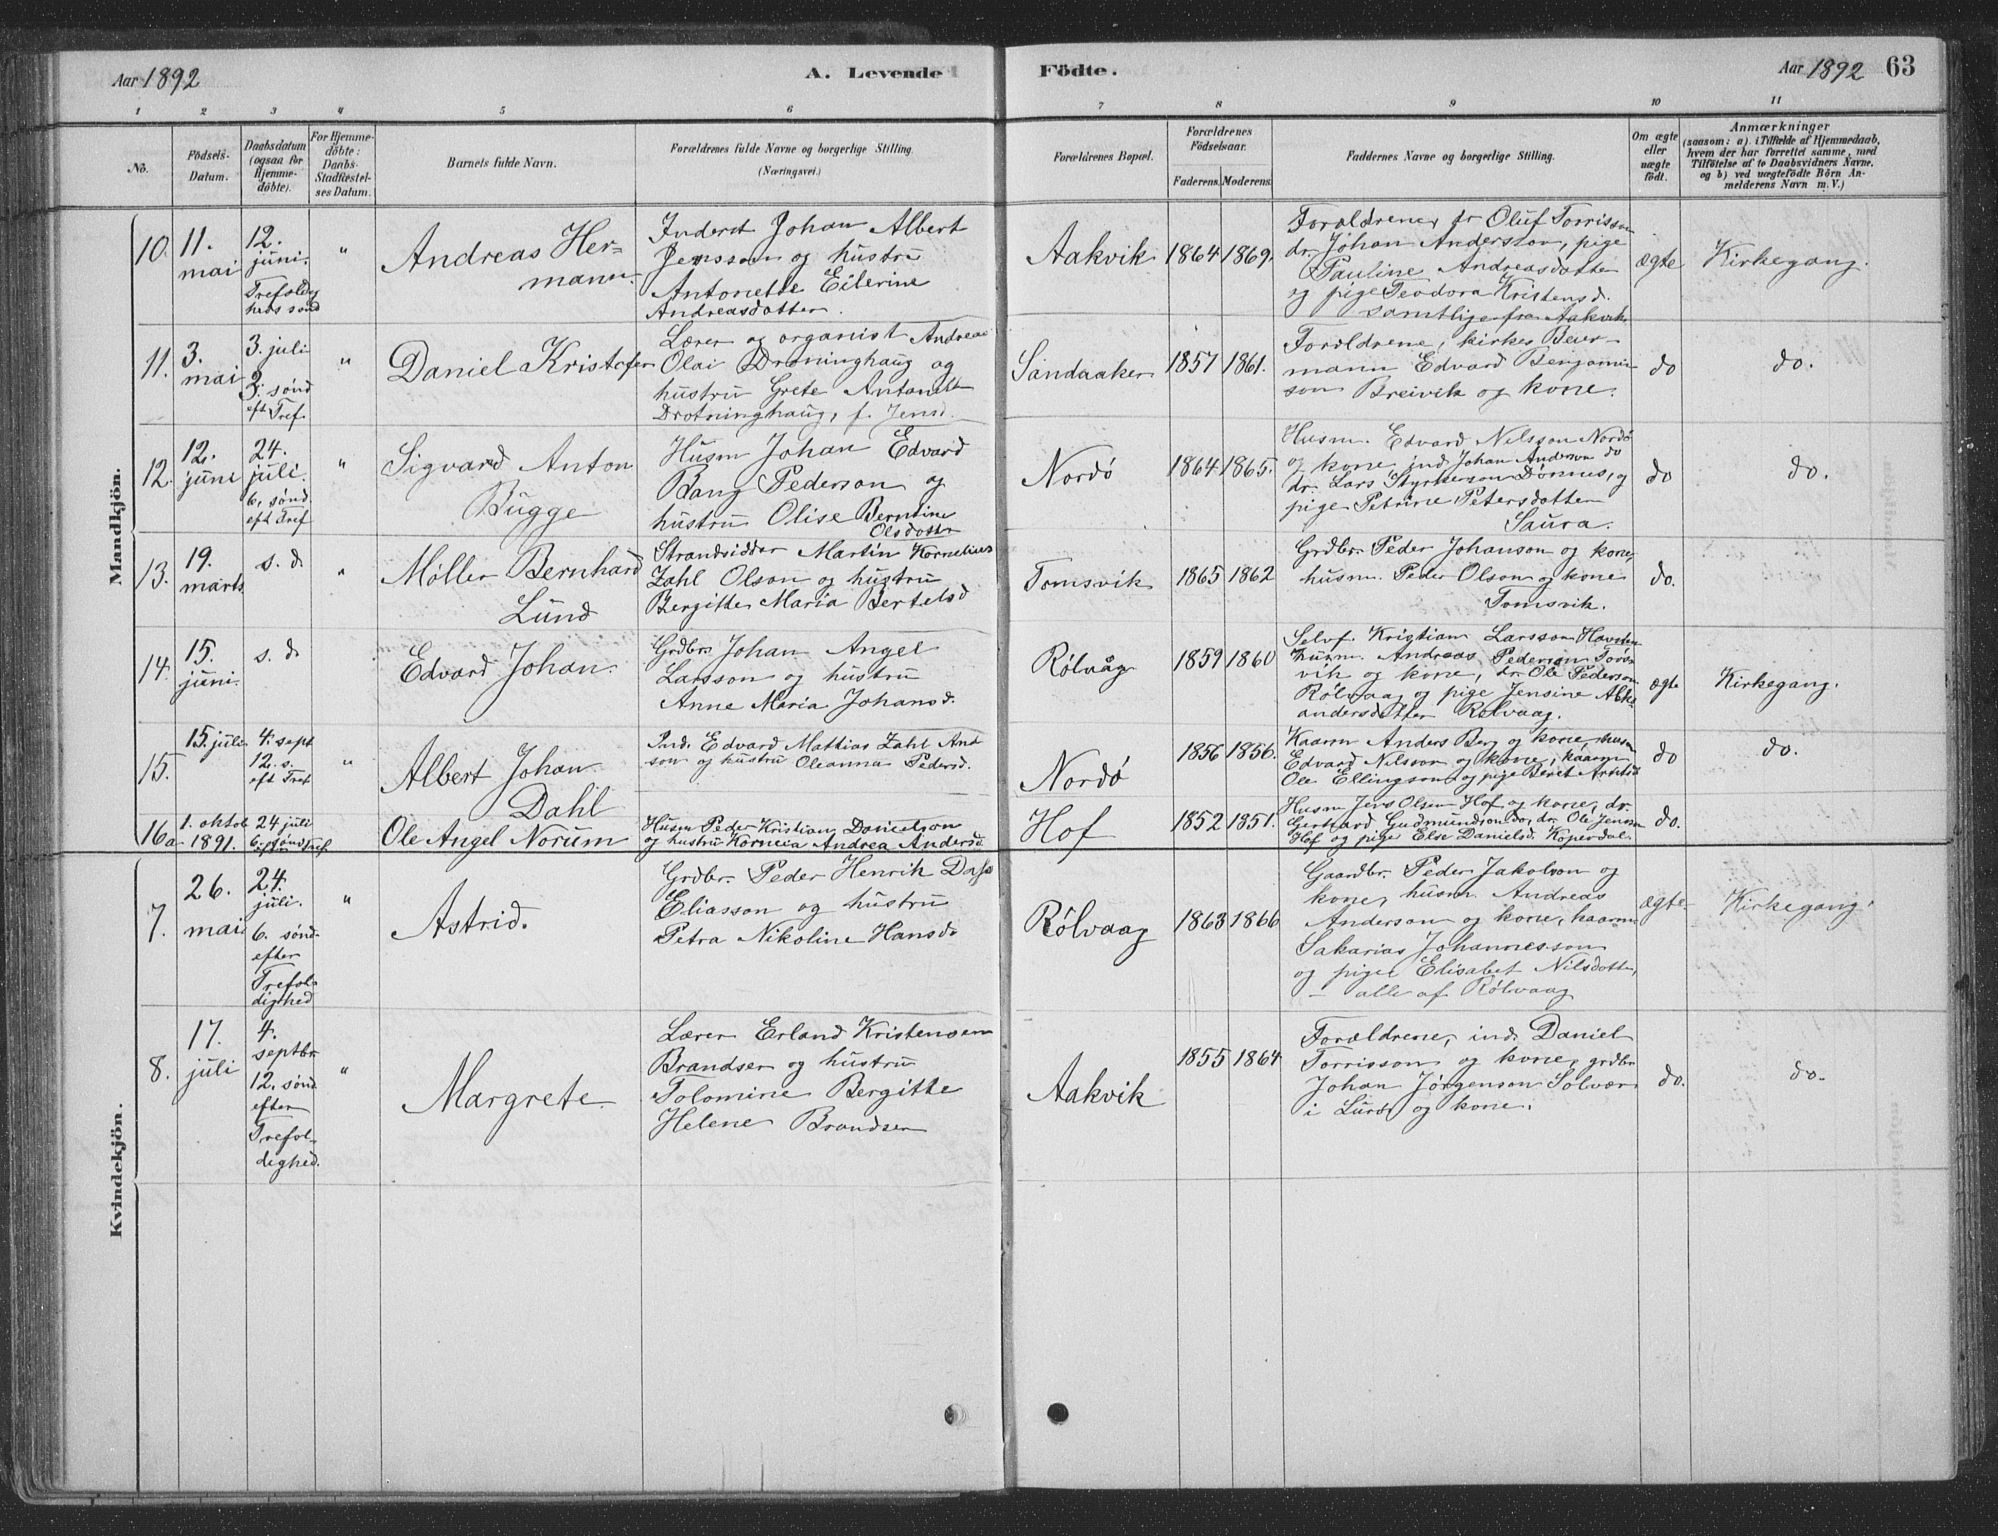 Aar 1892
A. Levende
Födte.
Aar 1892 63
1 2 3 4 5 6 7 8 9 10 11
No.
Födsels-
Datum.
Daabsdatum
(ogsaa for
Hjemme-
döbte).
For Hjemme-
döbte:
Daabs-
Stadfæstel-
ses Datum.
Barnets fulde Navn.
Forældrenes fulde Navne og borgerlige Stilling.
(Næringsvei.)
Forældrenes Bopæl.
Forældrenes
Födselsaar.
Faderens. Moderens.
Faddernes Navne og borgerlige Stilling.
Om ægte
eller
uægte
født.
Anmærkninger
(saasom: a) i Tilfælde af Hjemmedaab,
hvem der har forrettet samme, med
Tilföielse af to Daabsvidners Navne,
og b) ved uægtefödte Börn An-
melderens Navn m. V.)
Mandkjön.
10.
11.
mai
12.
juni.
Trefoldig
heds sönd
"
Andreas Her-
mann.
Inderst Johan Albert
Jensson og hustru
Antonette Eilerine
Andreasdatter.
Aakvik
1864 1869.
Forældrene, dr Oluf Torrisson
dr. Johan Andersson, pige
Pauline Andreasdatter
og pige Teodora Kristensd.
samtlige fra Aakvik
ægte
Kirkegang.
11.
3.
mai
3. juli
3. sønd
eft Tref.
"
Daniel Kristofer
Lærer og organist Andreas
Olai Droninghaug og
hustru Grete Antonette
Drotninghaug, f. Jensd.
Sandaaker
1857 1861.
Forældrene, kirkes Beier-
mann Edvard Benjamin
son Breivik og kone.
do
do.
12.
12.
juni
24.
juli.
6. sønd.
eft Tref
"
Sigvard Anton
Bugge
Husm Johan Edvard
Bang Pederson og
hustru Olise Berntine
Olsdatter
Nordö
1864 1865.
Husm. Edvard Nilsson Nordö
og kone, ind Johan Anderson do
dr. Lars Styrkerson Dönnes, og
pige Petrine Petersdatter
Saura.
do
do.
13.
19.
marts
s. d
"
Møller Bernhard
Lund
Strandsidder Martin Kornelius
Zahl Olson og hustru
Bergitte Maria Bertelsd
Tomsvik
1865 1862
Grdbr. Peder Johanson og kone,
husm. Peder Olson og kone
Tomsvik.
do.
14.
15.
juni.
s. d
Edvard Johan.
Grdbr Johan Angel
Larsson og hustru
Anne Maria Johansd.
Rölvåg
1859 1860
Selvf. Kristian Larsson Havsten
husm. Andreas Pederson Tors-
vik og kone, dr Ole Pederson
Rölvaag og pige Jensine Aleks-
andersdatter Rølvaag.
ægte
Kirkegang.
15.
15. juli
4. sept
12. s.
eft Tref
"
Albert Johan
Dahl
Ind. Edvard Mathias Zahl And
son og hustru Oleanna Pedersd.
Nordö
1856 1856.
Kaarm Anders Berg og kone, husm
Edvard Nilsson og kone, kaarm
Ole Ellingson og pige Beret
do
do.
16a.
1. oktob
1891.
24 juli
6. sönd Tref
Ole Angel Norum
Husm Peder Kristian Danielson
og hustru Kornelia Andrea Andersd.
Hof
1852 1851.
Husm Jens Olsen Hof og kone, dr.
Gerhard Gudmundson do, dr. Ole Jensen
Hof og pige Else Danielsd. Koperdal.
do.
Kvindekjön.
7.
26.
mai
24.
juli.
6. sønd-
efter
Trefol-
dighed
"
Astrid.
Grdbr. Peder Henrik Dass
Eliasson og hustru
Petra Nikoline Hansd
Rölvaag
1863 1866
Gaardbr. Peder Jakobson og
kone, husm. Andreas
Anderson og kone, kaarm
Sakarias Johannesson
og pige Elisabet Nilsdatter,
— alle af Rölvaag
ægte.
Kirkegang.
8.
17.
juli
4.
septbr.
12. sönd
efter
Trefol-
dighed.
"
Margrete.
Lærer Erland Kristensen
Brandser og hustru
Tolomine Bergitte
Helene Brandser
Aakvik
1855 1864
Forældrene, ind. Daniel
Torrisson og kone, grdbr
Johan Jörgenson Solvær
i Lurö og kone.
do.
do.